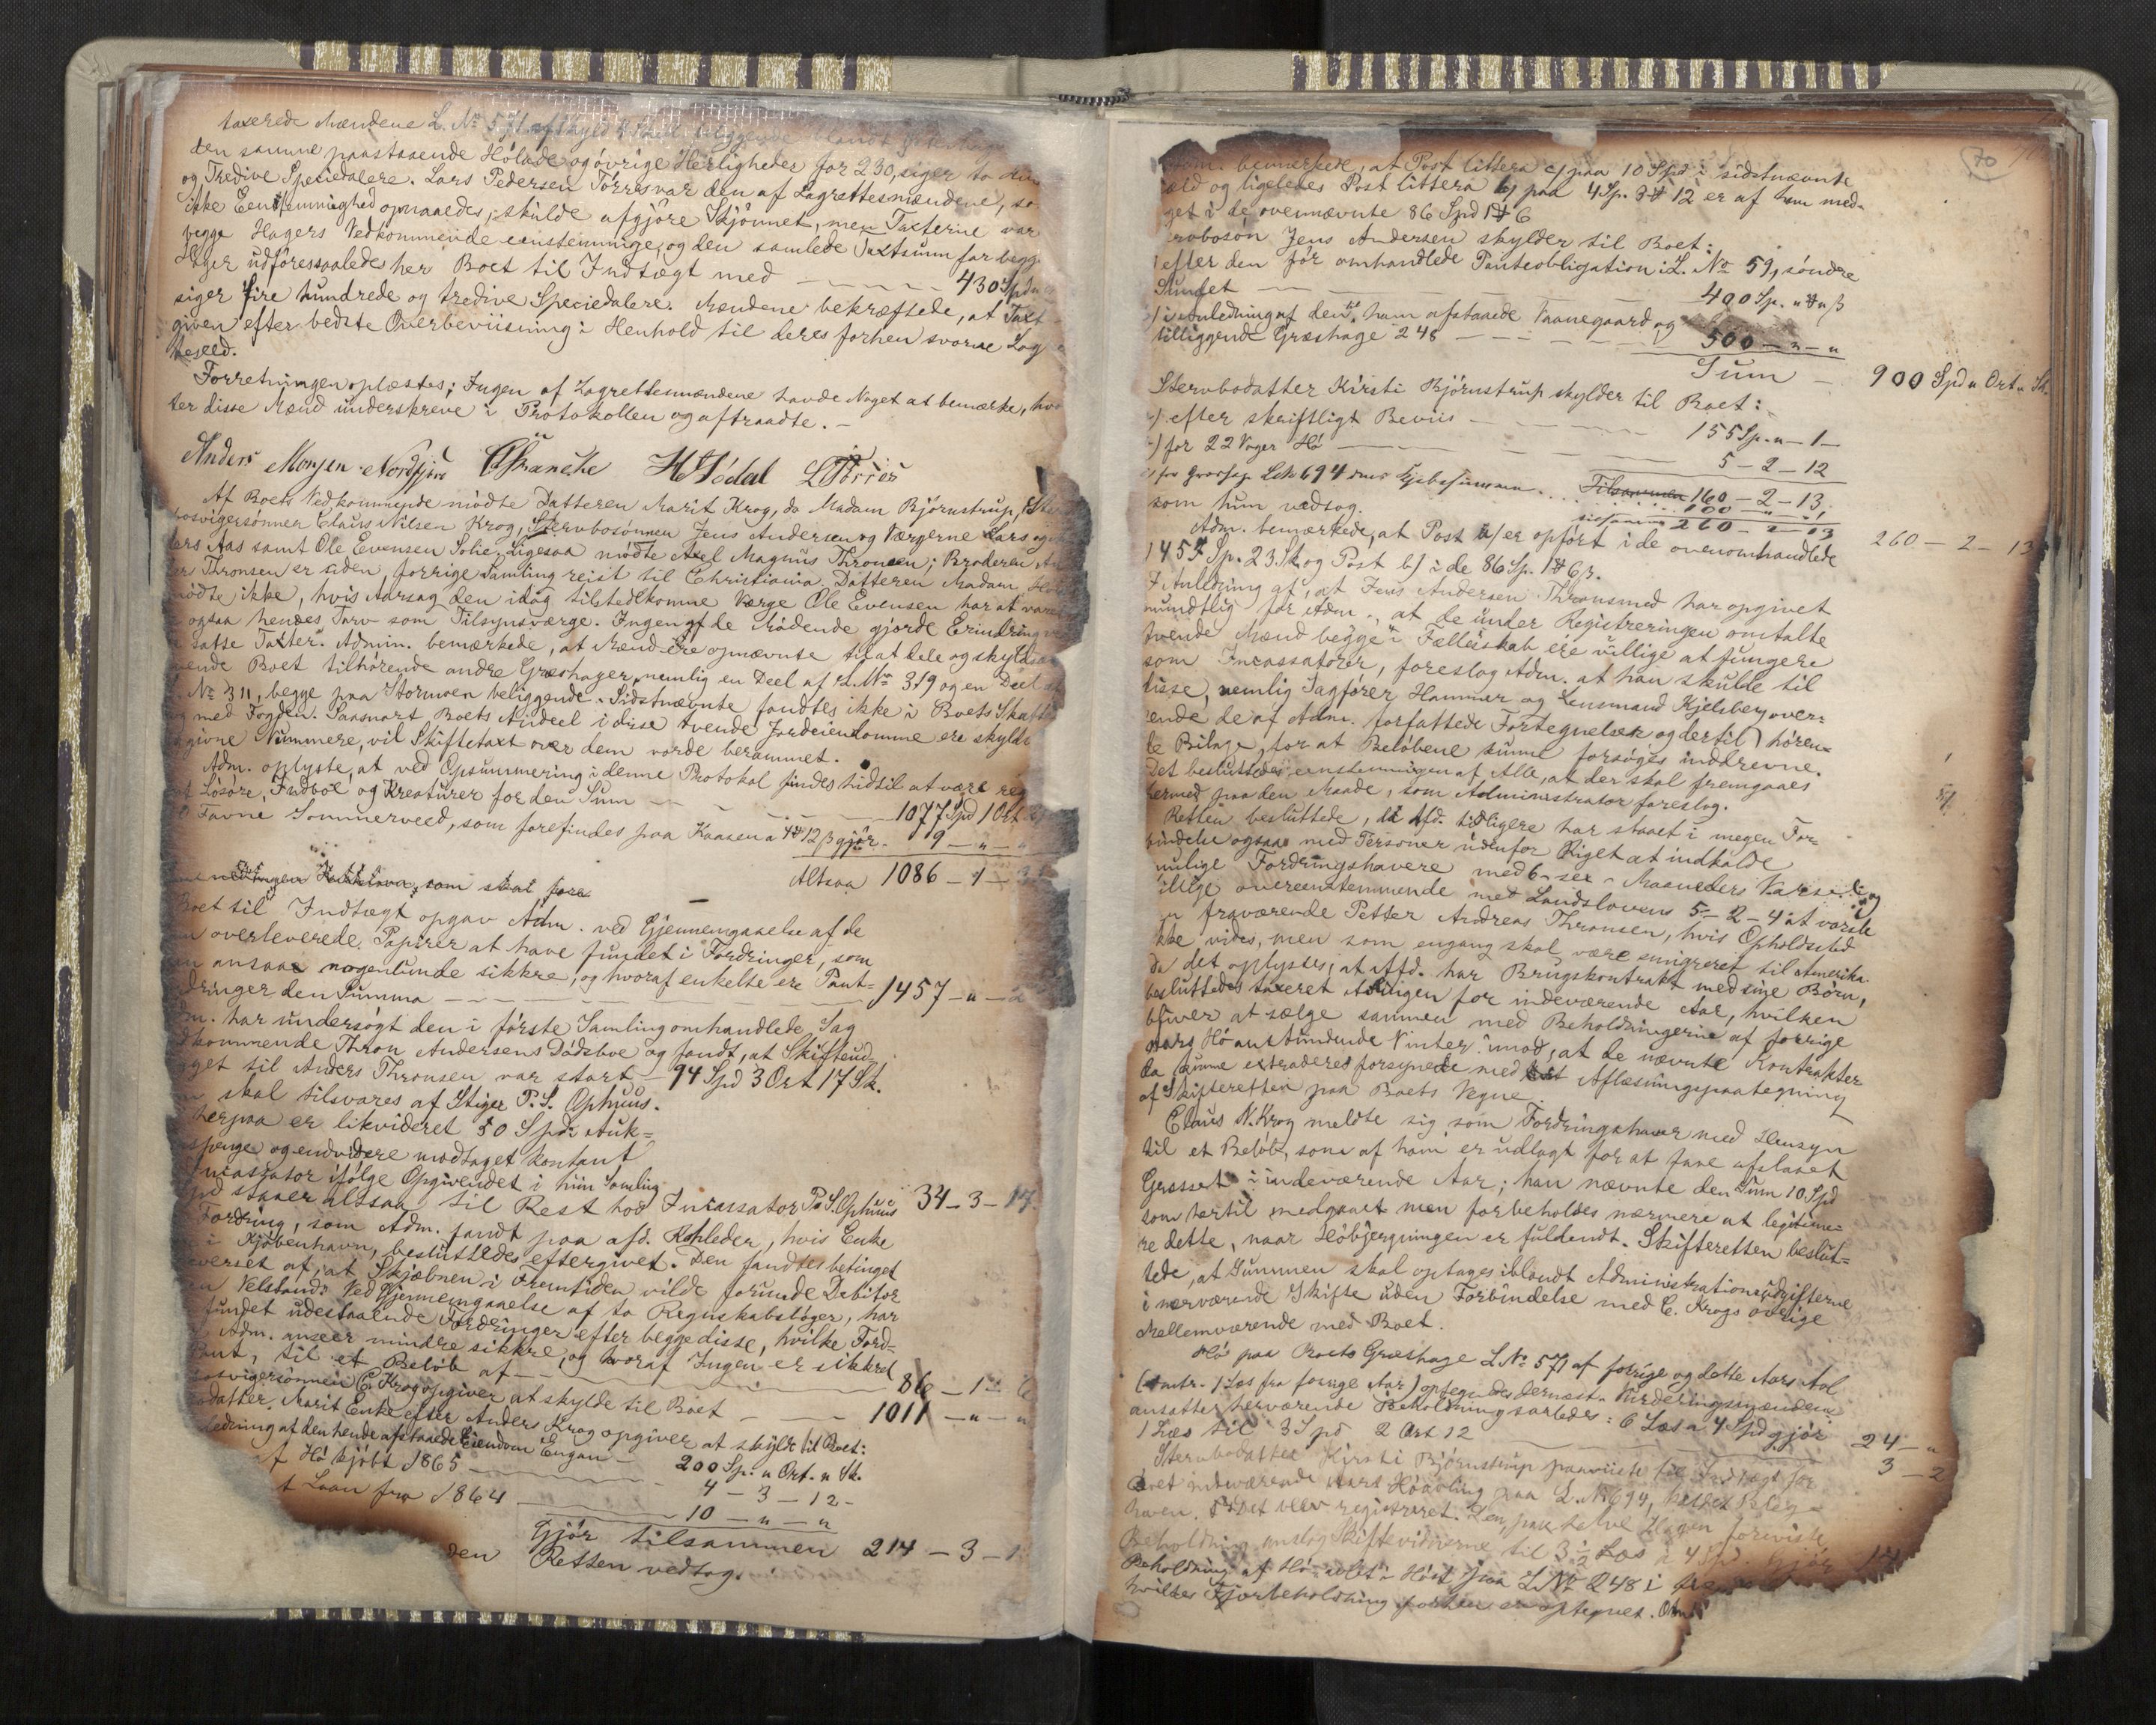 taxerede Mændene L. No 571 af Skyld
den samme paastaaende Hölade og övrige Herligheder for 230, siger to
og Tredive Speciedalere. Lars Pedersen Törres var den af Lagrettesmændene, so
ikke Eenstemmighed opnaaedes, skulde afgjöre Skjönnet, men Taxterne var
begge Hagers Vedkommende eenstemmige, og den samlede Taxtsum for begge
Hager udföres saaledes her Boet til Indtægt med — 430 Spd
siger fire hundrede og tredive Speciedalere. Mændene bekræftede, at Taxt
given efter bedste Overbeviisning i Henhold til deres forhen svorne Lag
teseed.
Forretningen oplæstes; Ingen af Lagrettesmændene havde Noget at bemærke, hvo
ter disse Mænd underskreve i Protokollen og aftraadte. —
Anders Monsen Nordfjord H Södal L Törres
Af Boets Vedkommende mödte Datteren Marit Krog, da Madam Björnstrup,
bosvigersönnen Claus Nilsen Krog, Stervbosönnen Jens Andersen og Værgerne Lars
Aas samt Ole Evensen Solie. Ligesaa mödte Axel Magnus Thronsen; Broderen
Thronsen er siden forrige Samling reist til Christiania. Datteren Madam
mödte ikke, hvis Aarsag den idag tilstedkomne Værge Ole Evensen har at
ogsaa hendes Tarv som Tilsynsværge. Ingen af de Mödende gjorde Erindring
satte Taxter. Admin. bemærkede, at Mænd ere opnævnte til at dele og skyld
ende Boet tilhörende andre Græshager, nemlig en Deel af L. No 319 og en Deel af
No 311, begge paa Stormoen beliggende. Sidstnævnte fandtes ikke i Boets Skatte
med Fogden. Saasnart Boets Andeel i disse tvende Jordeiendomme ere skyld
givne Nummere, vil Skiftetaxt over dem vorde berammet.
Adm. oplyste, at ved Opsummering i denne Protokol findes hidtil at være reg
Lösöre, Indboe og Kreaturer for den Sum — 1077 Spd 1 Ort
Favne Sommerveed, som forefindes paa Kaasen a 4 # 12 ß gjör - 9 — " — "
Altsaa 1086 — 1 —
som skal före
Boet til Indtægt opgav Adm. ved Gjennemgaaelse af de
overleverede Papirer at have fundet i Fordringer, som
ansaae nogenlunde sikkre, og hvoraf enkelte ere Pant-
dringer den Summa — 1457 — " —
har undersögt den i förste Samling omhandlede Sag
dkommende Thron Andersens Dödsboe og fandt, at Skifteud-
get til Anders Thronsen var stort — 94 Spd 3 Ort 17 Sk.
skal tilsvares af Stiger P. S. Ophuus.
herpaa er likvideret 50 Spd Auk-
spenge og endvidere modtaget kontant
Incassator ifölge Opgivendet i hiin Samling
staaer altsaa til Rest hos Incassator P. S. Ophuus 34 — 3 — 17.
Fordring, som Adm. fandt paa afd. Kohleder, hvis Enke
i Kjöbenhavn, besluttedes eftergivet. Den fandtes betinget
verset af, at Skjæbnen i Fremtiden vilde forunde Debitor
Velstand. Ved Gjennemgaaelse af to Regnskabsböger, har
fundet udestaaende Fordringer efter begge disse, hvilke Ford-
Adm. anseer mindre sikkre, og hvoraf Ingen er sikkret
Pant, til et Belöb af — 86 — 1 — 6
svigersönnen C. Krog opgiver at skylde til Boet — 1011 — " — "
datter Marit Enke efter Anders Krog opgiver at skylde til Boet:
ledning af den hende afstaaede Eiendom Engan — 200 Sp. " Ort. " Sk.
f Hö kjöbt 1865 — 4 — 3 — 12 —
t Laan fra 1864 — 10 — " — "
Gjör tilsammen 214 — 3 — 1
den Retten vedtog.
70
Adm. bemærkede, at Post littera c) paa 10 Spd i sidstnævnte
Gjæld og ligeledes Post littera b) paa 4 Sp. 3 # 12 er af ham med-
get i de ovennævnte 86 Spd 1 # 6
rvboson Jens Andersen skylder til Boet:
efter den för omhandlede Panteobligation i L. No 59, söndre
Sundet — 400 Sp. " # " ß
i Anledning af den til ham afstaaede Vaanegaard og
tilliggende Græshage 248 — 500 — " — "
Sum — 900 Spd " Ort " Sk.
Stervbodatter Kirsti Björnstrup skylder til Boet:
efter skriftligt Beviis — 155 Sp. " — 1 —
for 22 Voger Hö — 5 — 2 — 12
for Græshage L No 694 Kjöbesummen Tilsammen 160 — 2 — 13
100 — " — "
som hun vedtog. tilsammen 260 — 2 — 13
260 — 2 — 13
Adm. bemærkede, at Post a) er opfört i de ovenomhandlede
1457 Sp. 23 Sk. og Post b) i de 86 Sp. 1 # 6 ß.
I Anledning af, at Jens Andersen Thronsmed har opgivet
mundtlig for Adm., at de under Registreringen omtalte
tvende Mænd begge i Fælleskab ere villige at fungere
som Incassatorer, foreslog Adm. at han skulde til
disse, nemlig Sagförer Hammer og Lensmand Kjelsberg over-
sende de af Adm. forfattede Fortegnelser og dertil hören-
de Bilage, for at Belöbene kunne forsöges inddrevne.
Det besluttedes eenstemmigen af Alle, at der skal fremgaaes
hermed paa den Maade, som Administrator foreslog.
Retten besluttede, da Afd. tidligere har staaet i megen For-
bindelse ogsaa med Personer udenfor Riget at indkalde
mulige Fordringshavere med 6 - sex - Maaneders Varsel og
tillige overeenstemmende med Landslovens 5 - 2 - 4 at varsle
fraværende Petter Andreas Thronsen, hvis Opholdssted
ikke vides, men som engang skal være emigreret til Amerika.
Da det oplystes, at Afd. har Brugskontrakt med sine Börn,
besluttedes taxeret Avlingen for indeværende Aar, hvilken
bliver at sælge sammen med Beholdningerne af forrige
Aars Hö anstundende Vinter imod, at de nævnte Kontrakter
da kunne extraderes forsynede med Aflæsningspaategning
af Skifteretten paa Boets Vegne.
Claus N. Krog meldte sig som Fordringshaver med Hensyn
til et Belöb, som af ham er udlagt for at faae afslaaet
Græsset i indeværende Aar; han nævnte den Sum 10 Spd
som hertil medgaaet men forbeholdes nærmere at legitime-
re dette, naar Höbjergningen er fuldendt. Skifteretten beslut-
tede, at Summen skal optages iblandt Administrationsudgifterne
i nærværende Skifte uden Forbindelse med C. Krogs övrige
Mellemværende med Boet.
Hö paa Boets Græshage L No 571 af forrige og dette Aars Avl
(omtr. 1 Læs fra forrige Aar) optegnedes dernæst. Vurderingsmændene
ansatte herværende Beholdning saaledes: 6 Læs a 4 Spd gjör 24 — "
1 Læs til 3 Spd 2 Ort 12 — 3 — 2
Stervbodatter Kirsti Björnstrup paaviiste til Indtægt for
Boet indeværende Aars Höavling paa L No 694, kaldet
haven. Det blev registreret. Den paa halve Hagen foreviste
Beholdning anslog Skiftevidnerne til 3 ½ Læs a 4 Spd. Gjör 14
Beholdning af Hö avlet i Höst paa L No 248 i
hvilkes Fjorbeholdning forhen er optegnet.